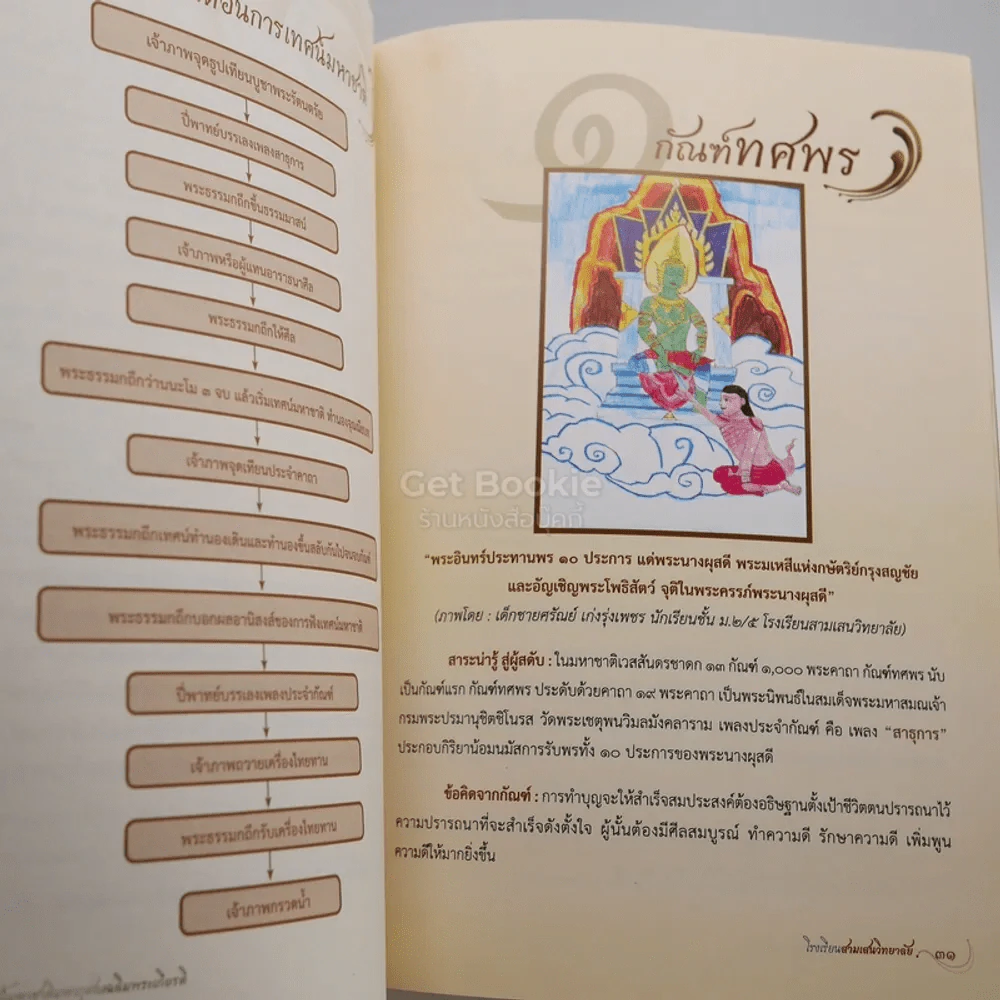 การเทศน์มหาชาติ
เจ้าภาพจุดธูปเทียนบูชาพระรัตนตรัย
ปี่พาทย์บรรเลงเพลงสาธุการ
พระธรรมกถึกขึ้นธรรมมาสน์
เจ้าภาพหรือผู้แทนอาราธนาศีล
พระธรรมกถึกให้ศีล
พระธรรมกถึกว่านนะโม ๓ จบ แล้วเริ่มเทศน์มหาชาติ ทำนอง
เจ้าภาพจุดเทียนประจำคาถา
พระธรรมกถึกเทศน์ทำนองเดินและทำนองขึ้นสลับกันไปจนจบกัณฑ์
พระธรรมกถึกบอกผลอานิสงส์ของการฟังเทศน์มหาชาติ
ปี่พาทย์บรรเลงเพลงประจำกัณฑ์
เจ้าภาพถวายเครื่องไทยทาน
พระธรรมกถึกรับเครื่องไทยทาน
เจ้าภาพกรวดน้ำ
เฉลิมพระเกียรติ
๑
กัณฑ์ทศพร
Get Bookie
ร้านหนังสือบุ๊คกี้
“พระอินทร์ประทานพร ๑๐ ประการ แด่พระนางผุสดี พระมเหสีแห่งกษัตริย์กรุงสญชัย
และอัญเชิญพระโพธิสัตว์ จุติในพระครรภ์พระนางผุสดี”
(ภาพโดย : เด็กชายศรัณย์ เก่งรุ่งเพชร นักเรียนชั้น ม.๒/๕ โรงเรียนสามเสนวิทยาลัย)
สาระน่ารู้ สู่ผู้สดับ : ในมหาชาติเวสสันดรชาดก ๑๓ กัณฑ์ ๑,๐๐๐ พระคาถา กัณฑ์ทศพร นับ
เป็นกัณฑ์แรก กัณฑ์ทศพร ประดับด้วยคาถา ๑๙ พระคาถา เป็นพระนิพนธ์ในสมเด็จพระมหาสมณเจ้า
กรมพระปรมานุชิตชิโนรส วัดพระเชตุพนวิมลมังคลาราม เพลงประจำกัณฑ์ คือ เพลง “สาธุการ”
ประกอบกิริยาน้อมนมัสการรับพรทั้ง ๑๐ ประการของพระนางผุสดี
ข้อคิดจากกัณฑ์ : การทำบุญจะให้สำเร็จสมประสงค์ต้องอธิษฐานตั้งเป้าชีวิตตนปรารถนาไว้
ความปรารถนาที่จะสำเร็จดังตั้งใจ ผู้นั้นต้องมีศีลสมบูรณ์ ทำความดี รักษาความดี เพิ่มพูน
ความดีให้มากยิ่งขึ้น
โรงเรียนสามเสนวิทยาลัย
๓๑